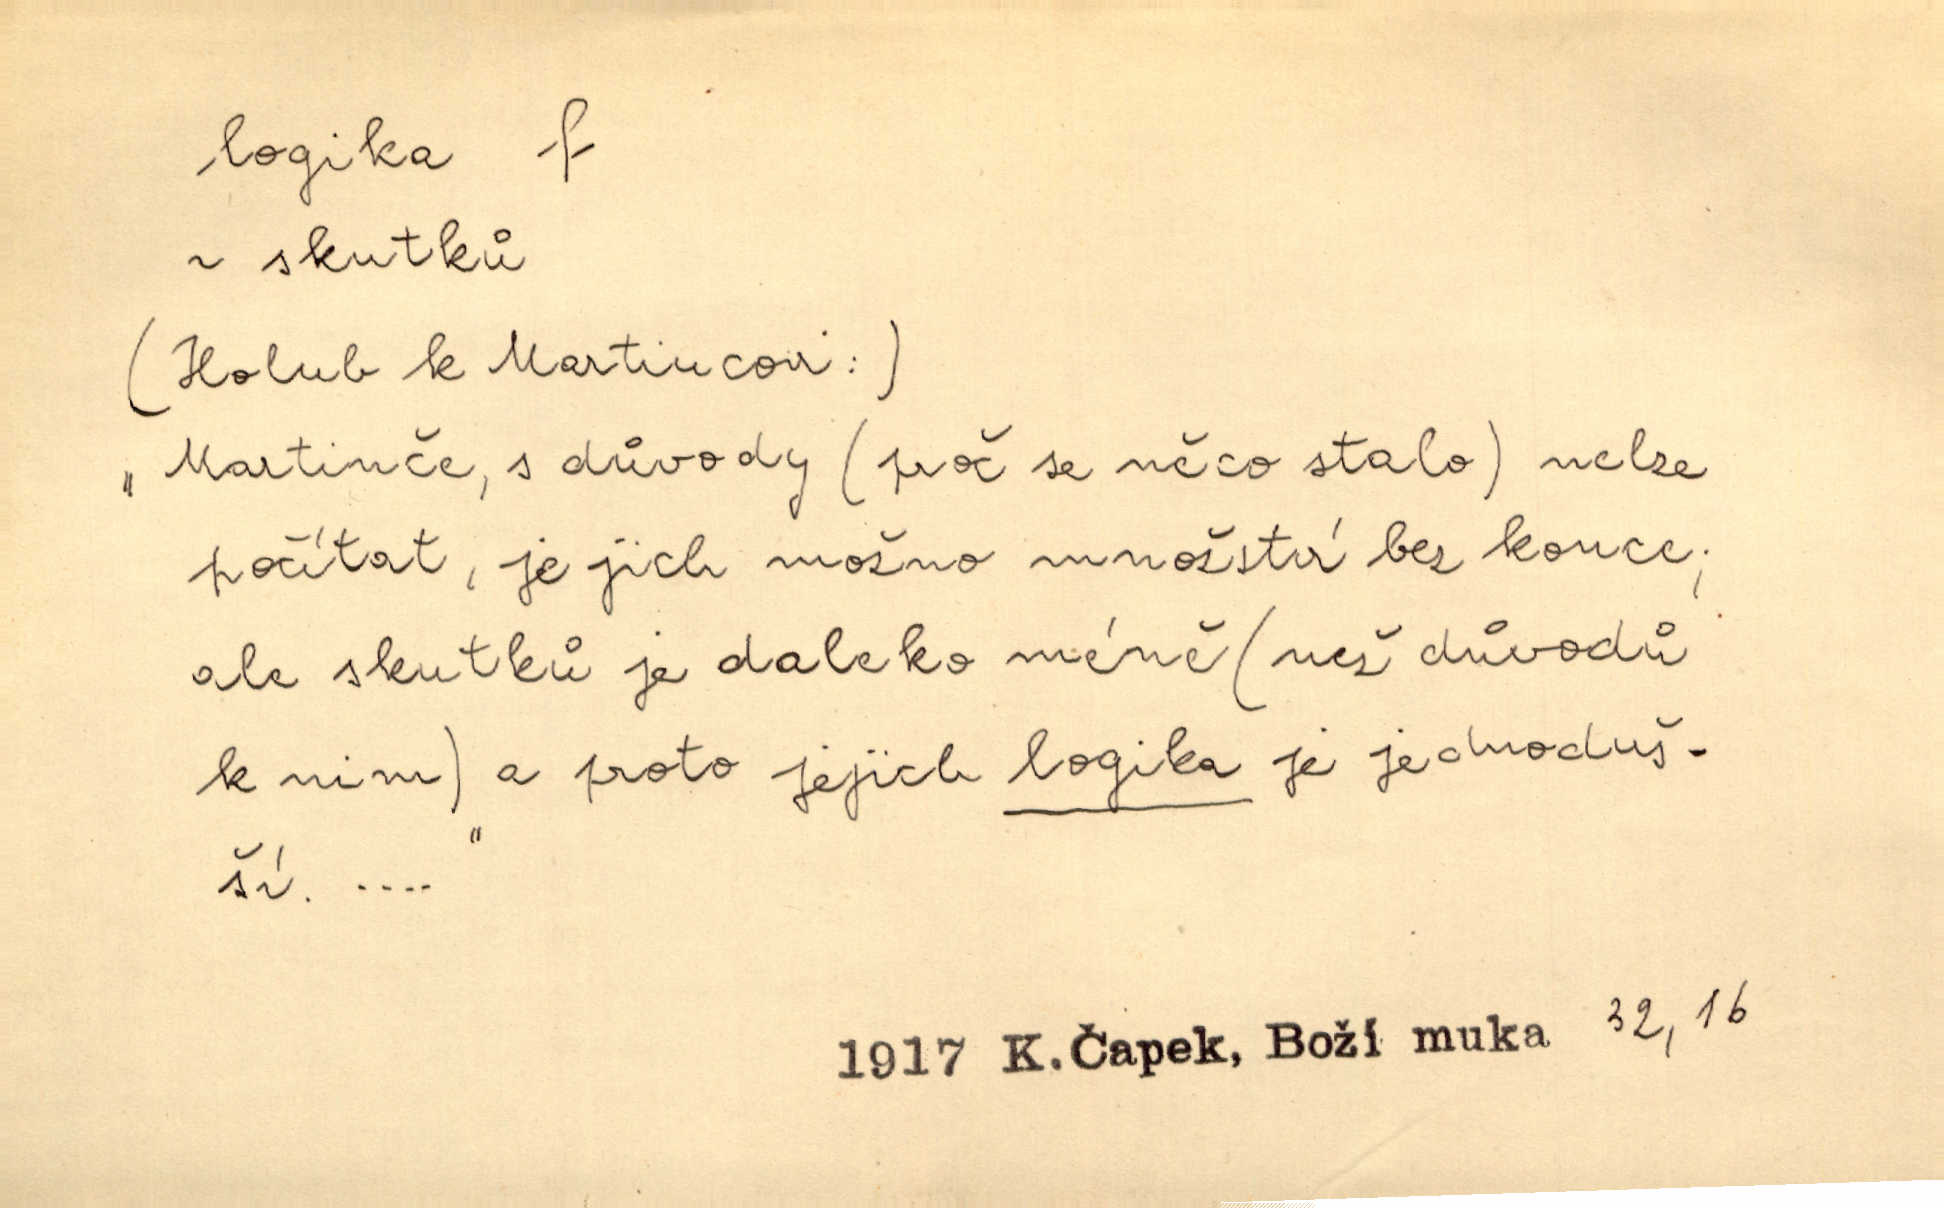 logika f
~ skutků
(Holub k Martincovi:)
„Martinče, s důvody (proč se něco stalo) nelze
počítat, je jich možno množství bez konce;
ale skutků je daleko méně (než důvodů
k nim) a proto jejich logika je jednoduš-
ší. ...."
1917 K. Čapek, Boží muka 32,16